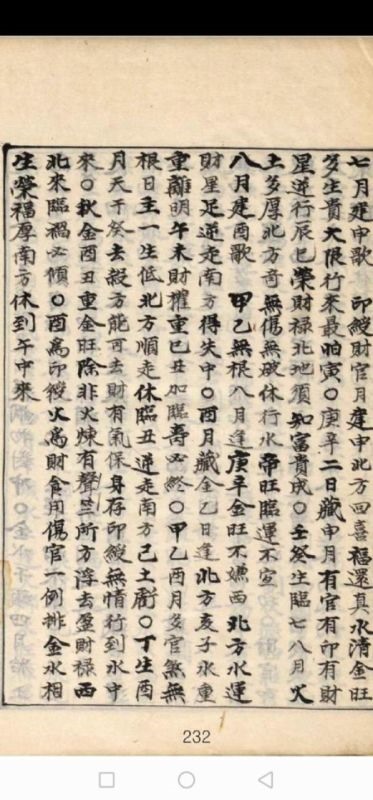 七月建申歌 印綬財官月建申北方回喜福還真水清金旺
多生貴大限行來最怕寅〇庚辛二日藏申月有官有印有財
星逆行辰巳榮財祿北地須知富貴成〇壬癸生臨七八月火
土多厚北方奇無傷無破休行水帝旺臨運不宜
八月建酉歌 甲乙無根八月逢庚辛金旺不嫌西北方水運
財星足逆走南方得失中〇酉月藏金乙日逢北方亥子水重
重離明午未財權重巳丑加臨壽必終〇甲乙酉月多官煞無
根日主一生低北方順走休臨丑逆走南方己土虧〇丁生酉
月天干癸去殺方能可去財有氣保身存印綬無情行到水中
來〇秋金酉丑重金旺除非火煉有聲所方去盡財祿西
北來臨禍必傾〇酉為印綬火為財食用傷官一例排金水相
生榮福厚南方休到午中來
232